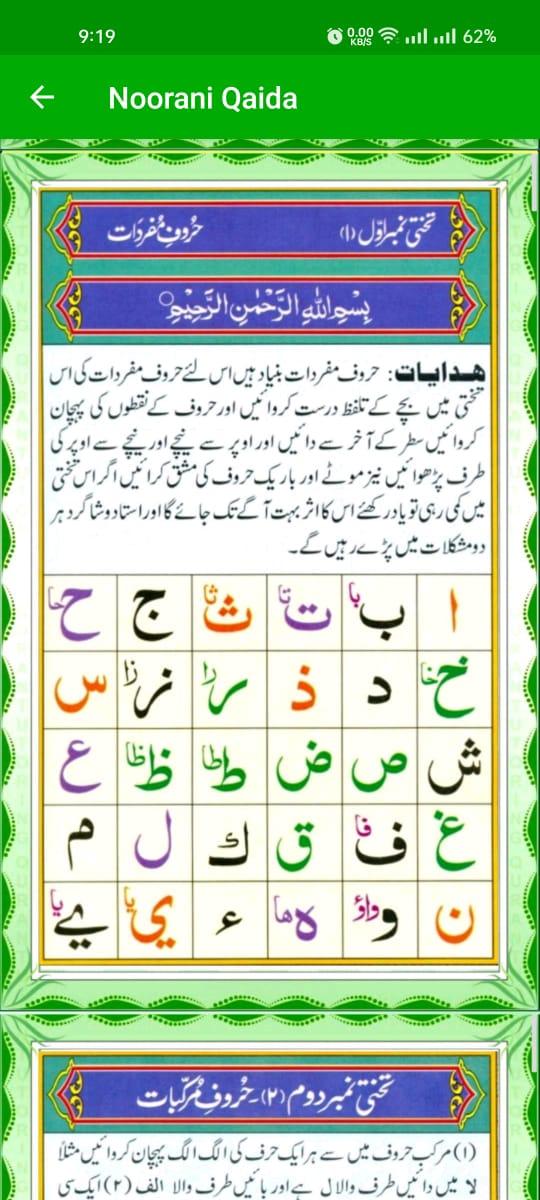 9:19
0.00 KB/S
62%
Noorani Qaida
تختی نمبر اوّل (۱) حُروفِ مُفرَدَات
بِسْمِ اللّٰهِ الرَّحْمٰنِ الرَّحِیْمِ
ھدایات: حروف مفردات بنیاد ہیں اس لئے حروف مفردات کی اس
تختی میں بچے کے تلفظ درست کروائیں اور حروف کے نقطوں کی پہچان
کروائیں سطر کے آخر سے دائیں اور اوپر سے نیچے اور نیچے سے اوپر کی
طرف پڑھوائیں نیز موٹے اور باریک حروف کی مشق کرائیں اگر اس تختی
میں کمی رہی تو یاد رکھئے اس کا اثر بہت آگے تک جائے گا اور استاد و شاگرد ہر
دو مشکلات میں پڑے رہیں گے۔
ا ب با ت تا ث ثا ج ح حا
خ خا د ذ ر را ز زا س
ش ص ض ط طا ظ ظا ع
غ ف فا ق ك ل م
ن و واؤ ہ ھا ء ي یا ے یا
تختی نمبر دوم (۲)۔ حُروفِ مُرکّبات
(۱) مرکب حروف میں سے ہر ایک حرف کی الگ الگ پہچان کروائیں مثلاً
لا میں دائیں طرف والا ل ہے اور بائیں طرف والا الف (۲) ایک سی